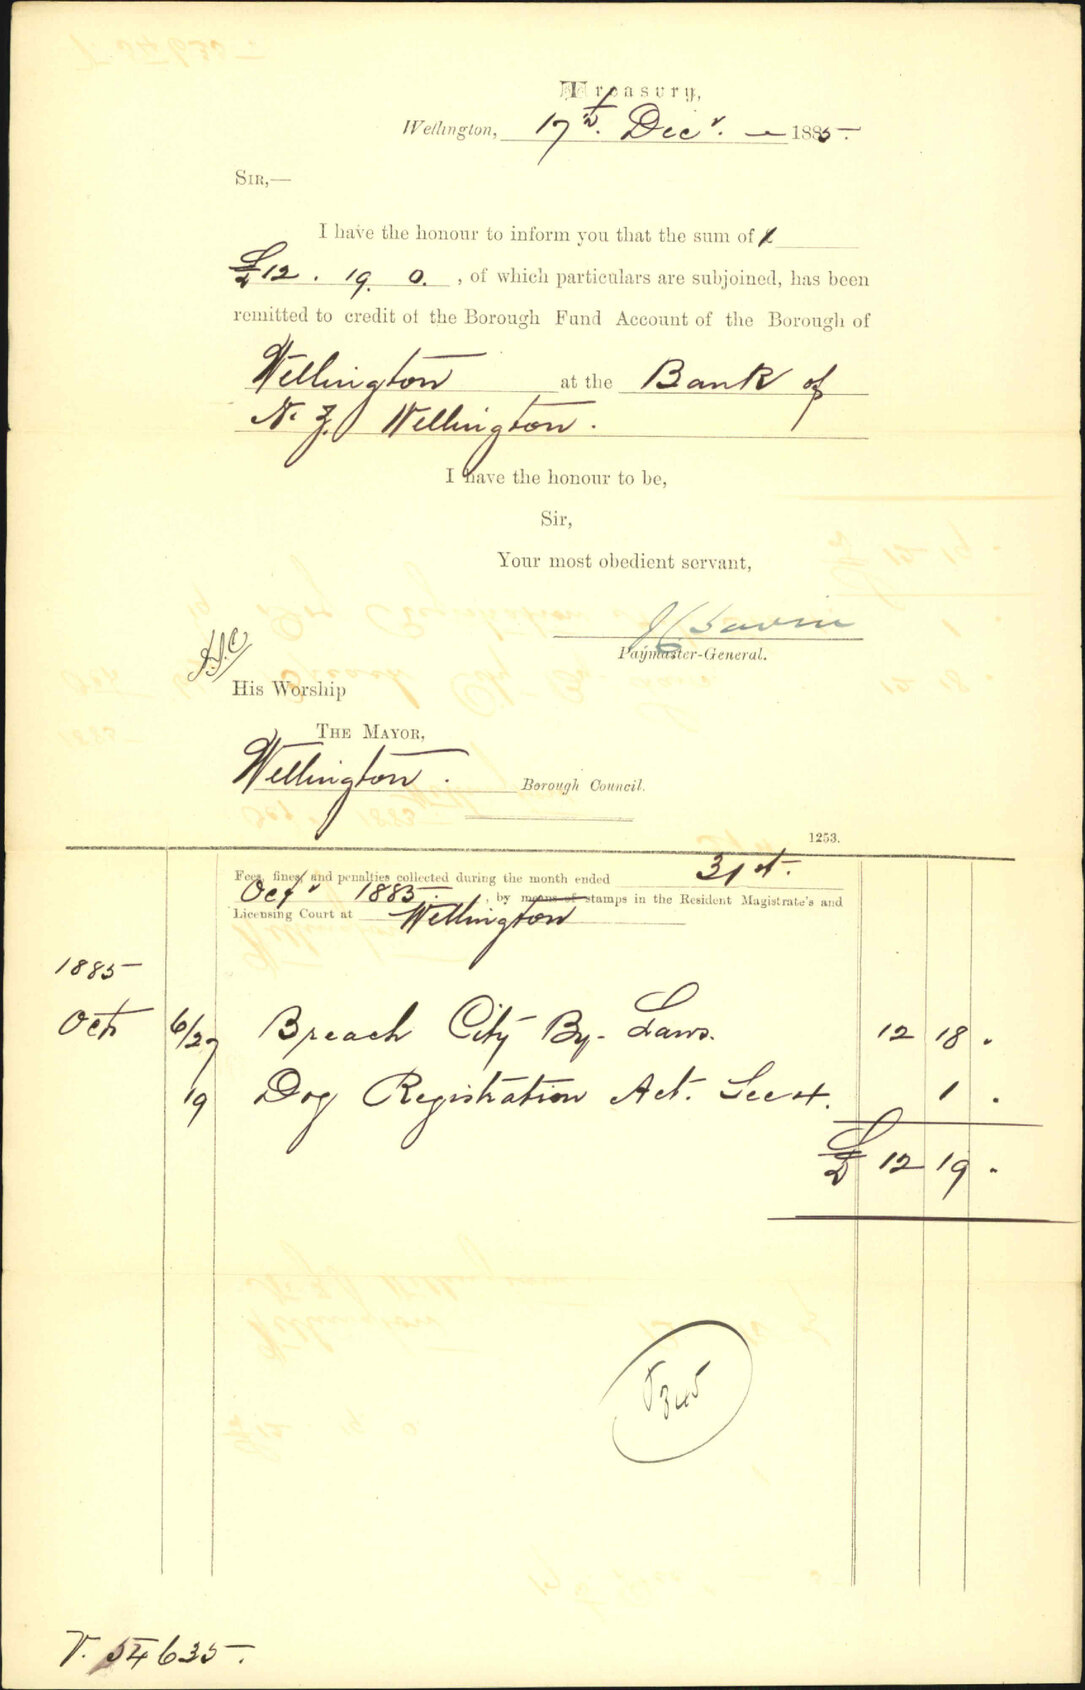 Treasury,
Wellington, 17th. Decr. — 1885.
SIR,—
I have the honour to inform you that the sum of
£12 . 19. 0. , of which particulars are subjoined, has been
remitted to credit of the Borough Fund Account of the Borough of
Wellington at the Bank of
N. Z. Wellington.
I have the honour to be,
Sir,
Your most obedient servant,
Paymaster-General.
His Worship
THE MAYOR,
Wellington. Borough Council.
1253.
Fees, fines, and penalties collected during the month ended 31st.
Octr 1885 , by means of stamps in the Resident Magistrate's and
Licensing Court at Wellington
1885
Oct 6/27 Breach City By-Laws. 12 18 .
19 Dog Registration Act. Sec 4. 1 .
£ 12 19 .
V. 54635.